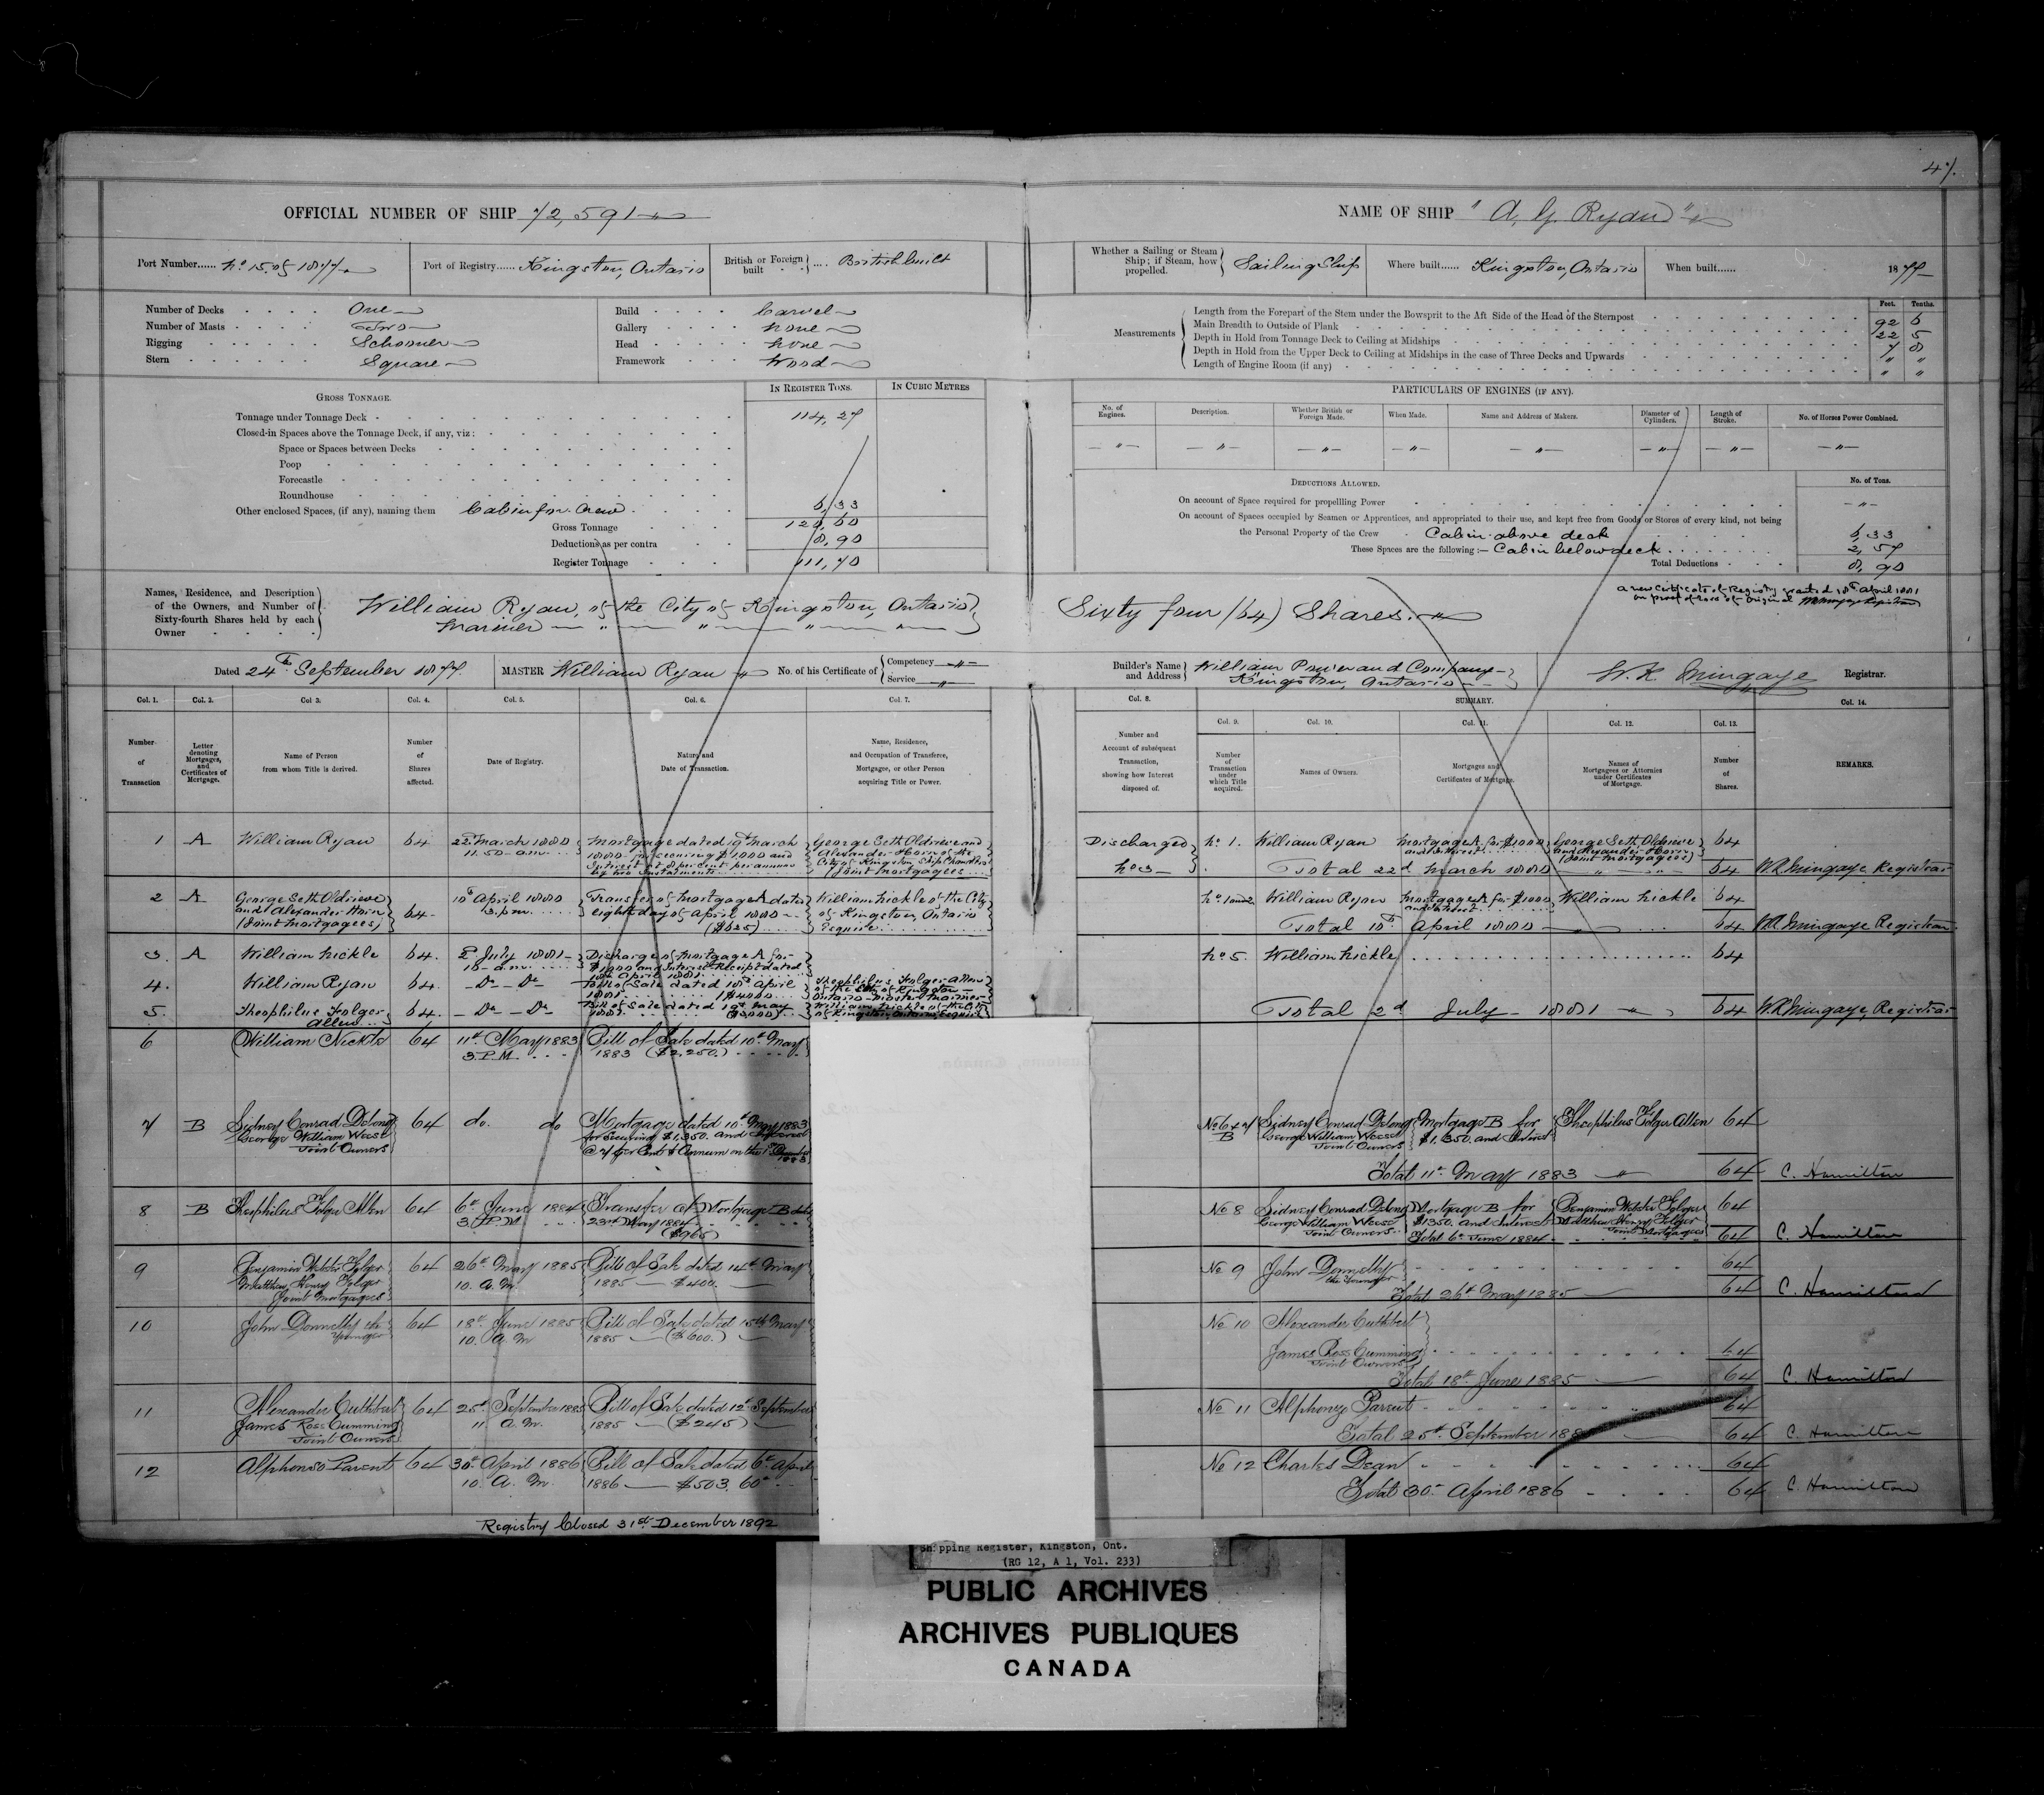 47.
OFFICIAL NUMBER OF SHIP 72,591
NAME OF SHIP "A. G. Ryan"
Port Number...... No 15 of 1877
Port of Registry...... Kingston, Ontario
British or Foreign built .... British built
Whether a Sailing or Steam Ship; if Steam, how propelled. Sailing Ship
Where built...... Kingston, Ontario
When built...... 1877
Number of Decks One
Number of Masts Two
Rigging Schooner
Stern Square
Build Carvel
Gallery none
Head none
Framework Wood
Measurements
Length from the Forepart of the Stem under the Bowsprit to the Aft Side of the Head of the Sternpost
Main Breadth to Outside of Plank
Depth in Hold from Tonnage Deck to Ceiling at Midships
Depth in Hold from the Upper Deck to Ceiling at Midships in the case of Three Decks and Upwards
Length of Engine Room (if any)
Feet. Tenths.
92 6
22 5
7 8
" "
" "
GROSS TONNAGE.
IN REGISTER TONS.
IN CUBIC METRES
Tonnage under Tonnage Deck 114,27
Closed-in Spaces above the Tonnage Deck, if any, viz:
Space or Spaces between Decks
Poop
Forecastle
Roundhouse
Other enclosed Spaces, (if any), naming them Cabin for Crew 6,33
Gross Tonnage 120,60
Deductions as per contra 8,90
Register Tonnage 111,70
PARTICULARS OF ENGINES (IF ANY).
No. of Engines.
Description.
Whether British or Foreign Made.
When Made.
Name and Address of Makers.
Diameter of Cylinders.
Length of Stroke.
No. of Horses Power Combined.
DEDUCTIONS ALLOWED.
No. of Tons.
On account of Space required for propellling Power
On account of Spaces occupied by Seamen or Apprentices, and appropriated to their use, and kept free from Goods or Stores of every kind, not being
the Personal Property of the Crew Cabin above deck 6,33
These Spaces are the following:— Cabin below deck 2,57
Total Deductions 8,90
Names, Residence, and Description of the Owners, and Number of Sixty-fourth Shares held by each Owner
William Ryan, of the City of Kingston, Ontario
Mariner
Sixty four (64) Shares.
a new Certificate of Registry granted 18th April 1881
on proof of loss of original WMingaye Registrar
Dated 24th September 1877.
MASTER William Ryan
No. of his Certificate of Competency Service
Builder's Name and Address William Power and Company
Kingston, Ontario
W. R. Mingaye Registrar.
Col. 1. Col. 2. Col 3. Col. 4. Col. 5. Col. 6. Col. 7.
Number of Transaction
Letter denoting Mortgages, and Certificates of Mortgage.
Name of Person from whom Title is derived.
Number of Shares affected.
Date of Registry.
Nature and Date of Transaction.
Name, Residence, and Occupation of Transferee, Mortgagee, or other Person acquiring Title or Power.
Col. 8. SUMMARY. Col. 14.
Col. 9. Col. 10. Col. 11. Col. 12. Col. 13.
Number and Account of subsequent Transaction, showing how Interest disposed of.
Number of Transaction under which Title acquired.
Names of Owners.
Mortgages and Certificates of Mortgage.
Names of Mortgagees or Attornies under Certificates of Mortgage.
Number of Shares.
REMARKS.
1 A William Ryan 64 22d March 1880
11.50 a.m.
Mortgage dated 19th March
1880 for securing $1000 and
Interest at 8 per cent per annum
by two Instalments
George Seth Oldrieve and
Alexander Horn of the
City of Kingston, Ship Chandlers
(Joint Mortgagees
Discharged
No 3
No 1. William Ryan Mortgage A for $1000 and Interest George Seth Oldrieve and Alexander Horn (Joint Mortgagees) 64
Total 22d March 1880 64 W.R. Mingaye Registrar
2 A George Seth Oldrieve
and Alexander Horn
(Joint Mortgagees)
64 10th April 1880
3 p.m.
Transfer of Mortgage A dated
eighth day of April 1880
($625)
William Nickle of the City
of Kingston, Ontario
Esquire
No 1 and 2 William Ryan Mortgage A for $1000 and Interest William Nickle 64
Total 10th April 1880 64 W.R. Mingaye Registrar
3 A William Nickle 64. 2d July 1881
10 a.m.
Discharge of Mortgage A for
$1000 and Interest Receipt dated
18th April 1881
4. William Ryan 64. Do Do
Bill of Sale dated 18th April
1881 ($4000
Theophilus Folger Allen
of the City of Kingston
Ontario Master Mariner
5. Theophilus Folger
Allen
64. Do Do
Bill of Sale dated 19th May
1881
William Nickle of the City
of Kingston, Ontario, Esquire
No 5. William Nickle 64
Total 2d July 1881 64 W.R. Mingaye, Registrar
6 William Nickle 64 11th May 1883
3. P.M.
Bill of Sale dated 10th May
1883 ($2,250.)
7 B Sidney Conrad Delong
George William Weese
Joint Owners
64 do. do
Mortgage dated 10th May 1883
for securing $1,350. and Interest
@ 7 per Cent ⅌ Annum on the 1st December
1883
No 6 & 7
B
Sidney Conrad Delong
George William Weese
Joint Owners
Mortgage B for
$1,350. and Interest
Theophilus Folger Allen 64
Total 11th May 1883 64 C. Hamilton
8 B Theophilus Folger Allen 64 6th June 1884
3. P.M.
Transfer of Mortgage B date
23rd May 1884
($965)
No 8 Sidney Conrad Delong
George William Weese
Joint Owners
Mortgage B for
$1350. and Interest
Benjamin Webster Folger
Matthew Henry Folger
Joint Mortgagees
64
Total 6th June 1884 64 C. Hamilton
9 Benjamin Webster Folger
Matthew Henry Folger
Joint Mortgagees
64 26th May 1885
10. A.M.
Bill of Sale dated 14th May
1885 — $400.
No 9 John Donnelly
the Younger
64
Total 26th May 1885 64 C. Hamilton
10 John Donnelly the
Younger
64 18th June 1885
10. A.M
Bill of Sale dated 15th May
1885 — ($600.)
No 10 Alexander Cuthbert
James Ross Cumming
Joint Owners
64
Total 18th June 1885 64 C. Hamilton
11 Alexander Cuthbert
James Ross Cumming
Joint Owners
64 25th September 1885
11 A.M.
Bill of Sale dated 12th September
1885 — ($245)
No 11 Alphonze Parent 64
Total 25th September 188 64 C. Hamilton
12 Alphonse Parent 64 30th April 1886
10. A.M.
Bill of Sale dated 6th April
1886 — $503.60
No 12 Charles Dean 64
Total 30th April 1886 64 C. Hamilton
Registry Closed 31st December 1892
Shipping Register, Kingston, Ont.
(RG 12, A 1, Vol. 233)
PUBLIC ARCHIVES
ARCHIVES PUBLIQUES
CANADA